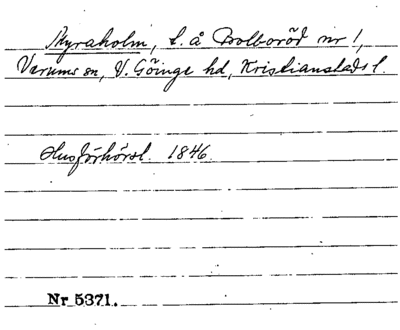 Myraholm, l. å Bolboröd nr 1,
Verums sn, V. Göinge hd, Kristianstads l.
Husförhörsl. 1846.
Nr 5371.